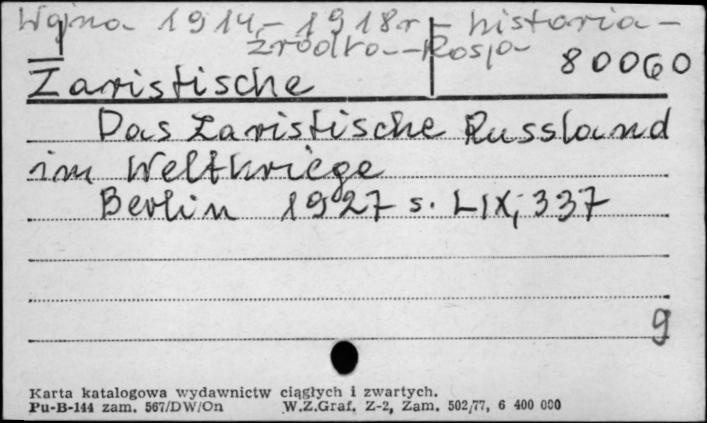 Wojna 1914-1918r - historia -
źródła - Rosja
80060
Zaristische
Das Zaristische Russland
im Weltkriege
Berlin 1927 s. LIX, 337
g
Karta katalogowa wydawnictw ciągłych i zwartych.
Pu-B-144 zam. 567/DW/On W.Z.Graf. Z-2, Zam. 502/77, 6 400 000